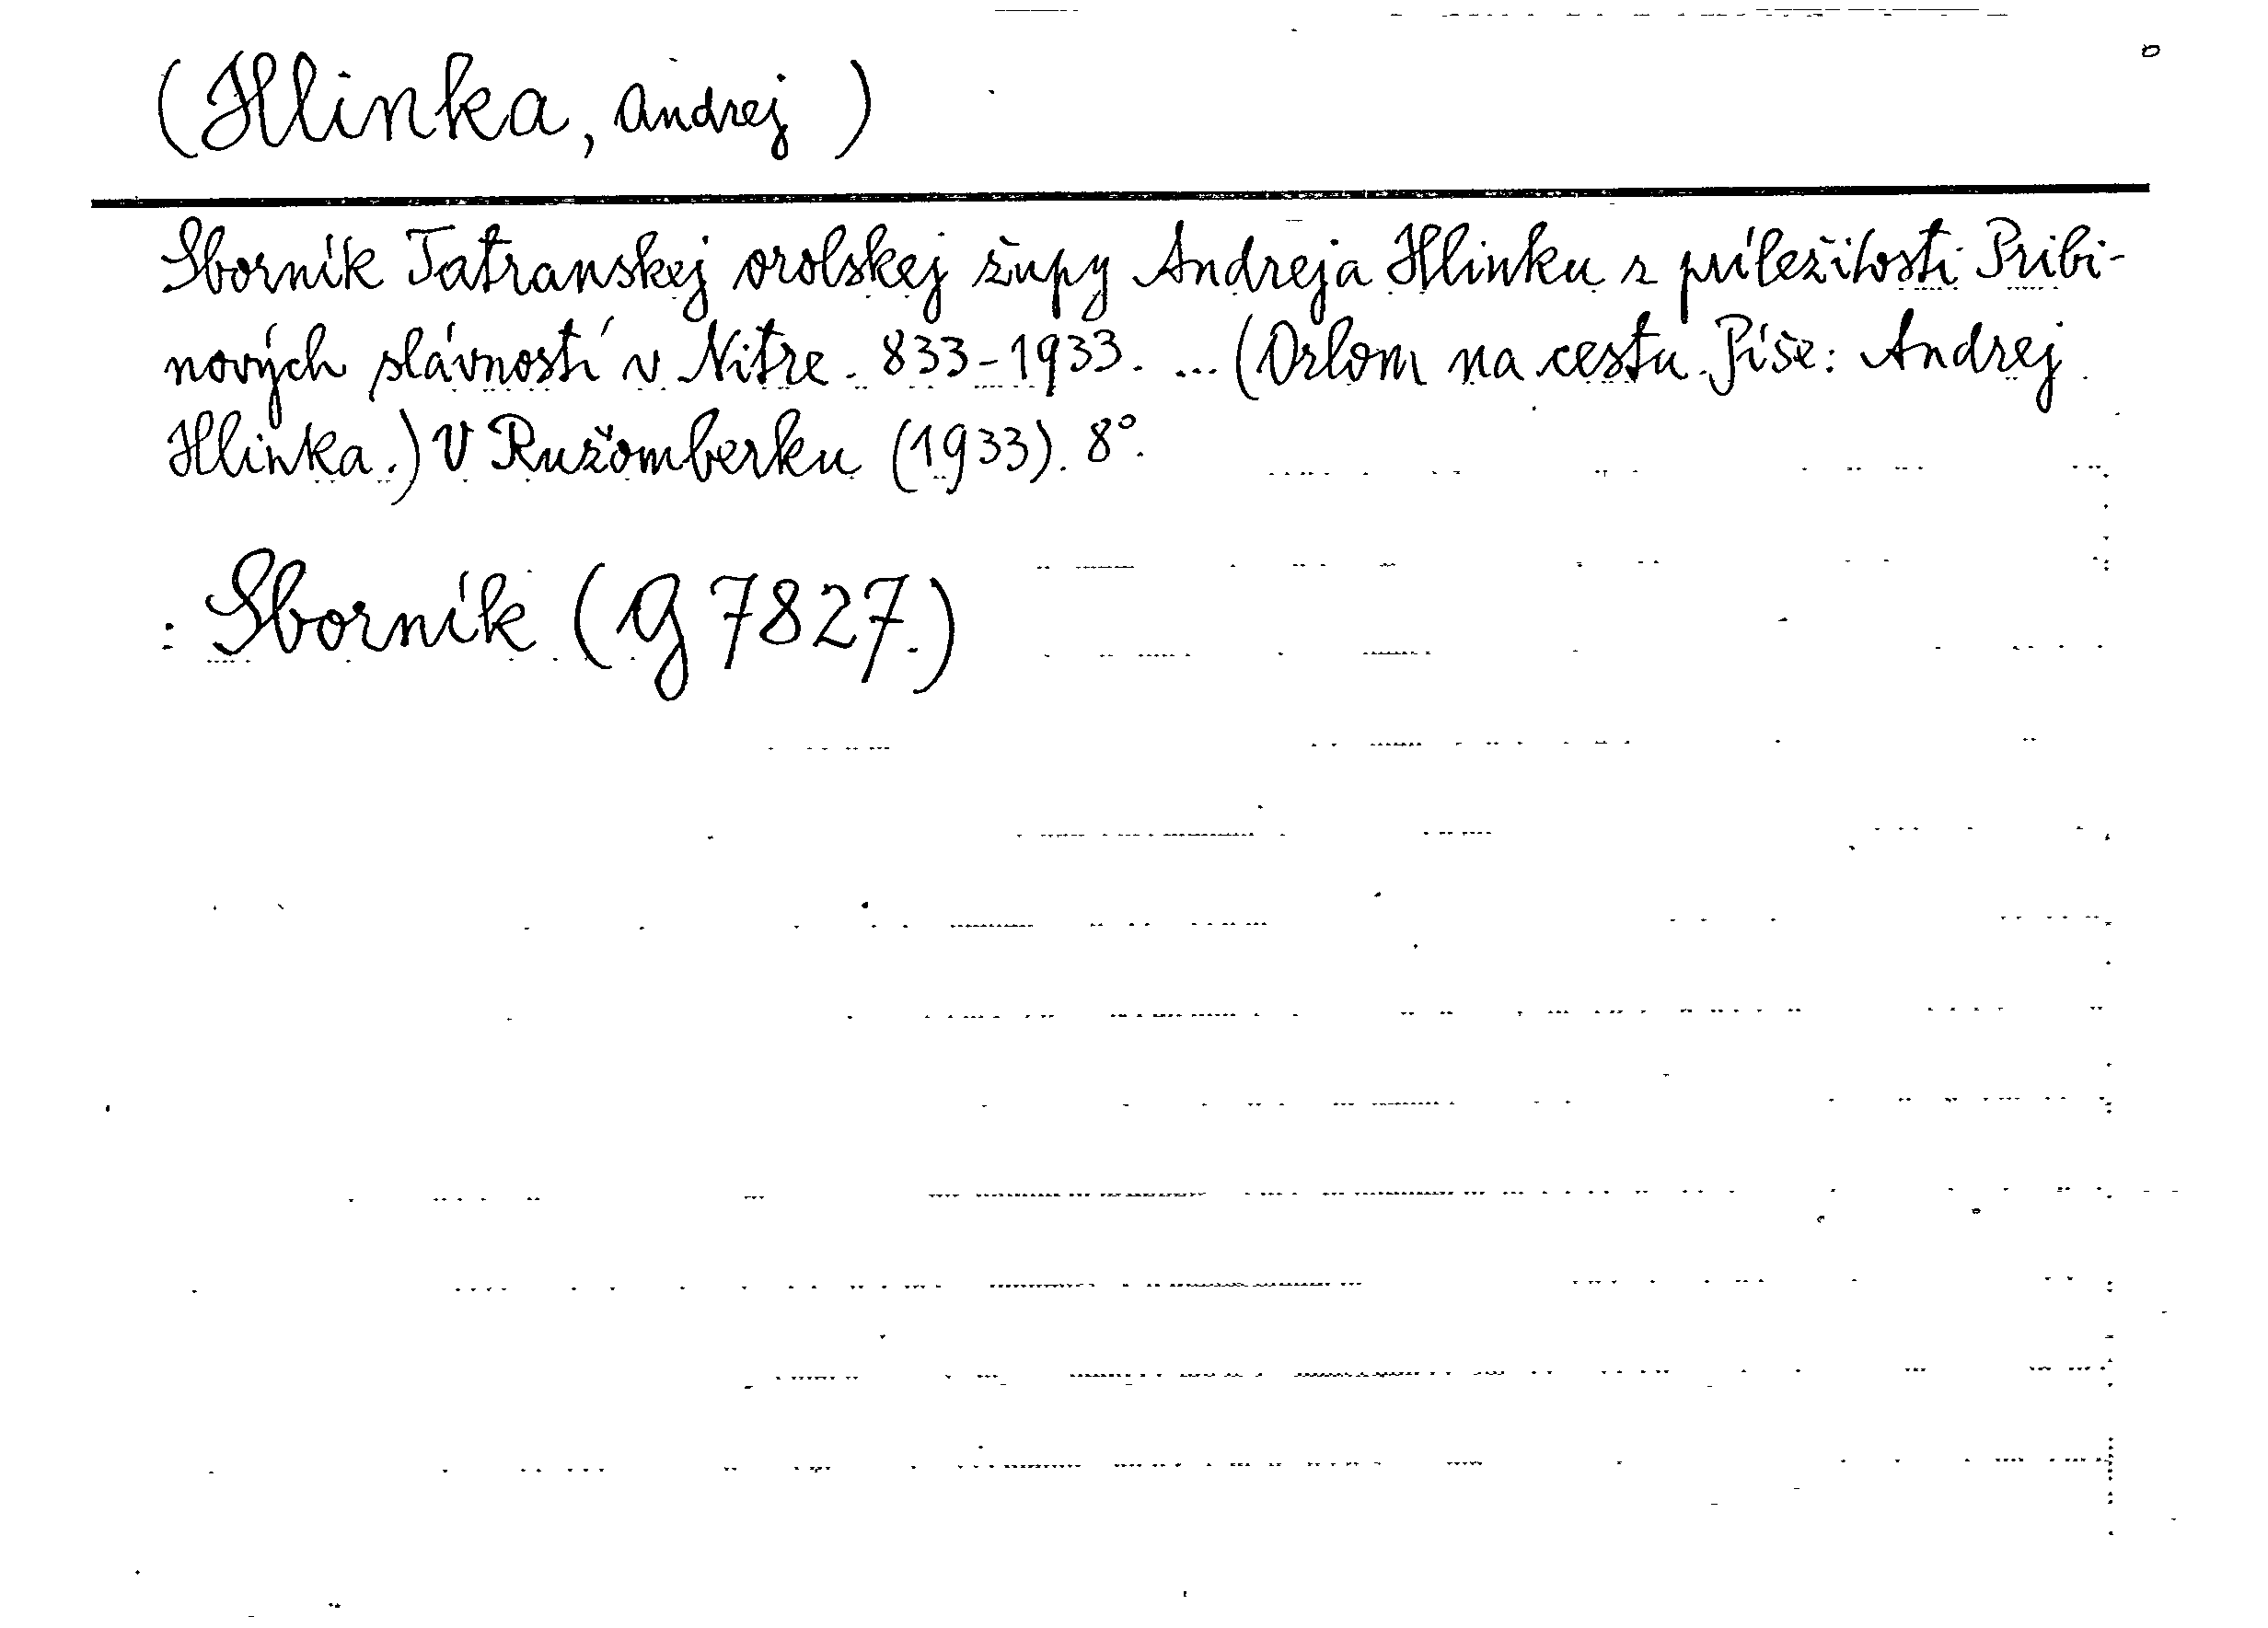 (Hlinka, Andrej)
Sborník Tatranskej orolskej župy Andreja Hlinku z príležitosti Pribi-
nových slávností v Nitre. 833-1933. ... (Orlom na cestu. Píše: Andrej
Hlinka.) V Ružomberku (1933). 8°.
: Sborník (G 7827.)